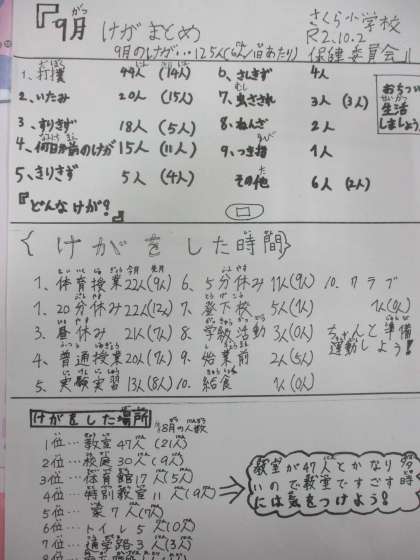 『9月 けがまとめ
さくら小学校
R2.10.2
9月のけが…125人(6人/1日あたり) 保健委員会
1、打撲 44人(14人)
2、いたみ 20人(15人)
3、すりきず 18人(5人)
4、何日か前のけが 15人(11人)
5、きりきず 5人(4人)
『どんなけが?』
6、さしきず 4人
7、虫さされ 3人(3人)
8、ねんざ 2人
9、つき指 1人
その他 6人(2人)
おちついた
生活
しましょう
{けがをした時間}
今月 先月
1、体育授業 22人(9人)
1、20分休み 22人(12人)
3、昼休み 21人(7人)
4、普通授業 20人(7人)
5、実験実習 13人(8人)
6、5分休み 11人(9人)
7、登下校 5人(1人)
8、学級活動 3人(0人)
9、始業前 2人(5人)
10、給食 1人(0人)
10、クラブ
1人(0人)
ちゃんと準備
運動しよう!
けがをした場所
()8月の人数
1位…教室 47人(21人)
2位…校庭 30人(9人)
3位…体育館 17人(5人)
4位…特別教室 11人(9人)
5位… 家 7人(7人)
6位…トイレ 5人(0人)
7位…通学路 3人(3人)
教室が47人とかなり多
いので教室ですごす時
には気をつけよう!